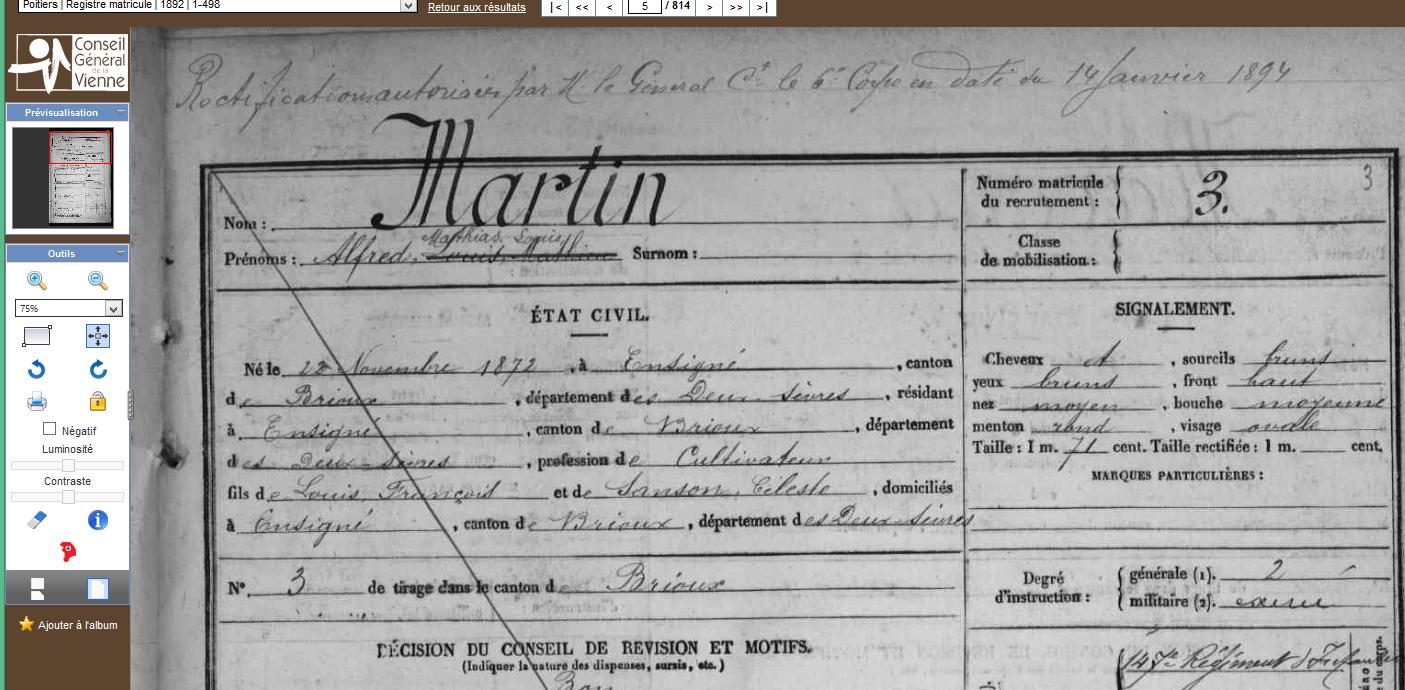 Poitiers | Registre matricule | 1892 | 1-498
Retour aux résultats
|< << < 5 / 814 > >> >|
Conseil
Général
de la
Vienne
Prévisualisation
Outils
75%
Négatif
Luminosité
Contraste
Ajouter à l'album
Rectifications autorisées par M le Général Ct le 6e Corps en date du 14 Janvier 1894
3
Nom : Martin
Mathias, Louis
Prénoms : Alfred, Louis, Mathieu Surnom :
Numéro matricule
du recrutement : 3.
Classe
de mobilisation :
ÉTAT CIVIL.
Né le 22 Novembre 1872, à Ensigné, canton
de Brioux, département des Deux-Sèvres, résidant
à Ensigné, canton de Brioux, département
des Deux-Sèvres, profession de Cultivateur
fils de Louis, François et de Sanson, Céleste, domiciliés
à Ensigné, canton de Brioux, département des Deux Sèvres
N° 3 de tirage dans le canton de Brioux
DÉCISION DU CONSEIL DE REVISION ET MOTIFS.
(Indiquer la nature des dispenses, sursis, etc.)
Bon
SIGNALEMENT.
Cheveux et, sourcils bruns
yeux bruns, front haut
nez moyen, bouche moyenne
menton rond, visage ovale
Taille : 1 m. 71 cent. Taille rectifiée : 1 m. cent.
MARQUES PARTICULIÈRES :
Degré
d'instruction :
générale (1). 2
militaire (2).
Régiment d'Infanterie
du corps.